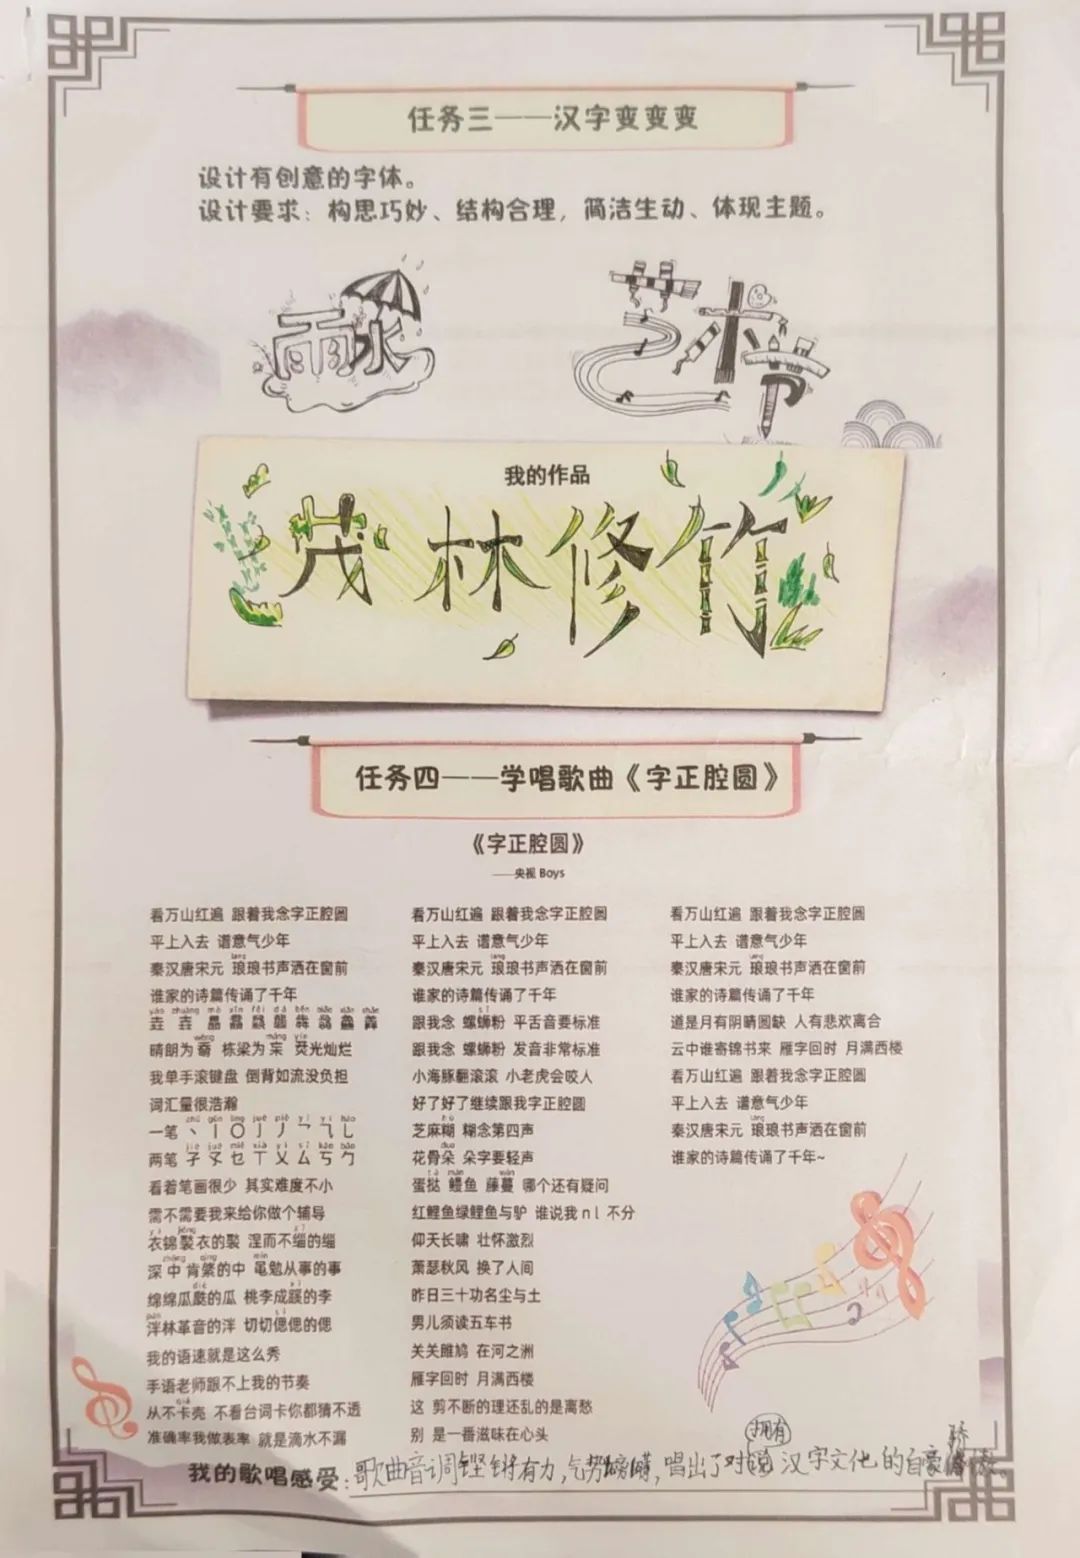 任务三——汉字变变变
设计有创意的字体。
设计要求：构思巧妙、结构合理，简洁生动、体现主题。
雨水
艺术节
我的作品
茂林修竹
任务四——学唱歌曲《字正腔圆》
《字正腔圆》
——央视 Boys
看万山红遍 跟着我念字正腔圆
平上入去 谱意气少年
秦汉唐宋元 琅琅书声洒在窗前
谁家的诗篇传诵了千年
yáo zhuàng mò xīn fēi dá bēn biāo xiān shān
垚 壵 羴
晴朗为 栋梁为 荧光灿烂
我单手滚键盘 倒背如流没负担
词汇量很浩瀚
一笔 丶 丨 〇 亅 丿 乛 乁 乚
两笔 孑 孓 乜 丅 乂 厶 丂 勹
看着笔画很少 其实难度不小
需不需要我来给你做个辅导
衣锦褧衣的褧 涅而不缁的缁
深中肯綮的中 黾勉从事的事
绵绵瓜瓞的瓜 桃李成蹊的李
泮林革音的泮 切切偲偲的偲
我的语速就是这么秀
手语老师跟不上我的节奏
从不卡壳 不看台词卡你都猜不透
准确率我做表率 就是滴水不漏
看万山红遍 跟着我念字正腔圆
平上入去 谱意气少年
秦汉唐宋元 琅琅书声洒在窗前
谁家的诗篇传诵了千年
跟我念 螺蛳粉 平舌音要标准
跟我念 螺蛳粉 发音非常标准
小海豚翻滚滚 小老虎会咬人
好了好了继续跟我字正腔圆
芝麻糊 糊念第四声
花骨朵 朵字要轻声
蛋挞 鳗鱼 藤蔓 哪个还有疑问
红鲤鱼绿鲤鱼与驴 谁说我 n l 不分
仰天长啸 壮怀激烈
萧瑟秋风 换了人间
昨日三十功名尘与土
男儿须读五车书
关关雎鸠 在河之洲
雁字回时 月满西楼
这 剪不断的理还乱的是离愁
别 是一番滋味在心头
看万山红遍 跟着我念字正腔圆
平上入去 谱意气少年
秦汉唐宋元 琅琅书声洒在窗前
谁家的诗篇传诵了千年
道是月有阴晴圆缺 人有悲欢离合
云中谁寄锦书来 雁字回时 月满西楼
看万山红遍 跟着我念字正腔圆
平上入去 谱意气少年
秦汉唐宋元 琅琅书声洒在窗前
谁家的诗篇传诵了千年~
我的歌唱感受：歌曲音调铿锵有力，气势磅礴，唱出了对拥有汉字文化的自豪骄傲。